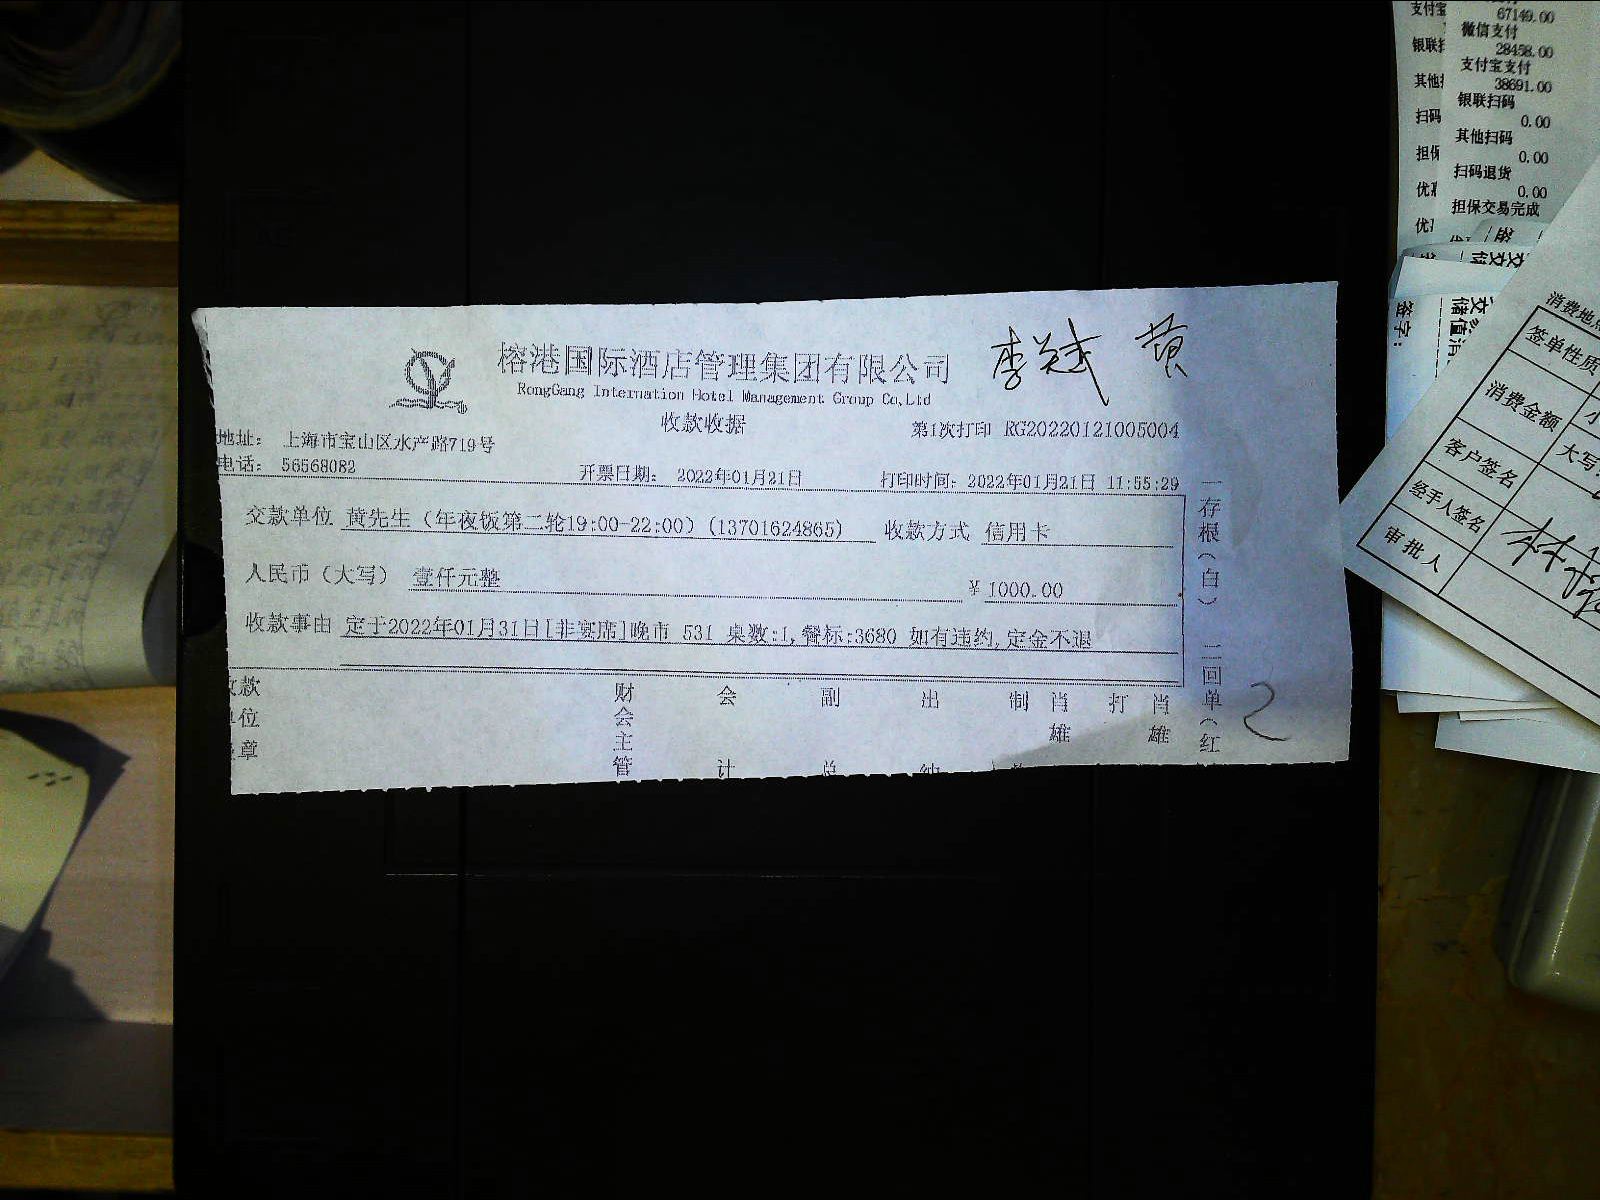 榕港国际酒店管理集团有限公司
RongGang Internation Hotel Management Group Co,Ltd
收款收据
第1次打印 RG20220121005004
地址： 上海市宝山区水产路719号
电话： 56568082
开票日期： 2022年01月21日
打印时间： 2022年01月21日 11:55:29
交款单位 黄先生（年夜饭第二轮19:00-22:00）(13701624865) 收款方式 信用卡
人民币（大写） 壹仟元整 ¥1000.00
收款事由 定于2022年01月31日[非宴席]晚市 531 桌数:1,餐标:3680 如有违约,定金不退
收款
单位
章
财会主管
会计
副总
出纳
制 肖雄
打 肖雄
一存根（白） 二回单（红
2
67149.00
微信支付
28458.00
支付宝支付
38691.00
银联扫码
0.00
其他扫码
0.00
扫码退货
0.00
担保交易完成
支付宝
银联扫
其他
扫码
担保
签字：
签单性质
消费金额
大写
客户签名
经手人签名
审批人